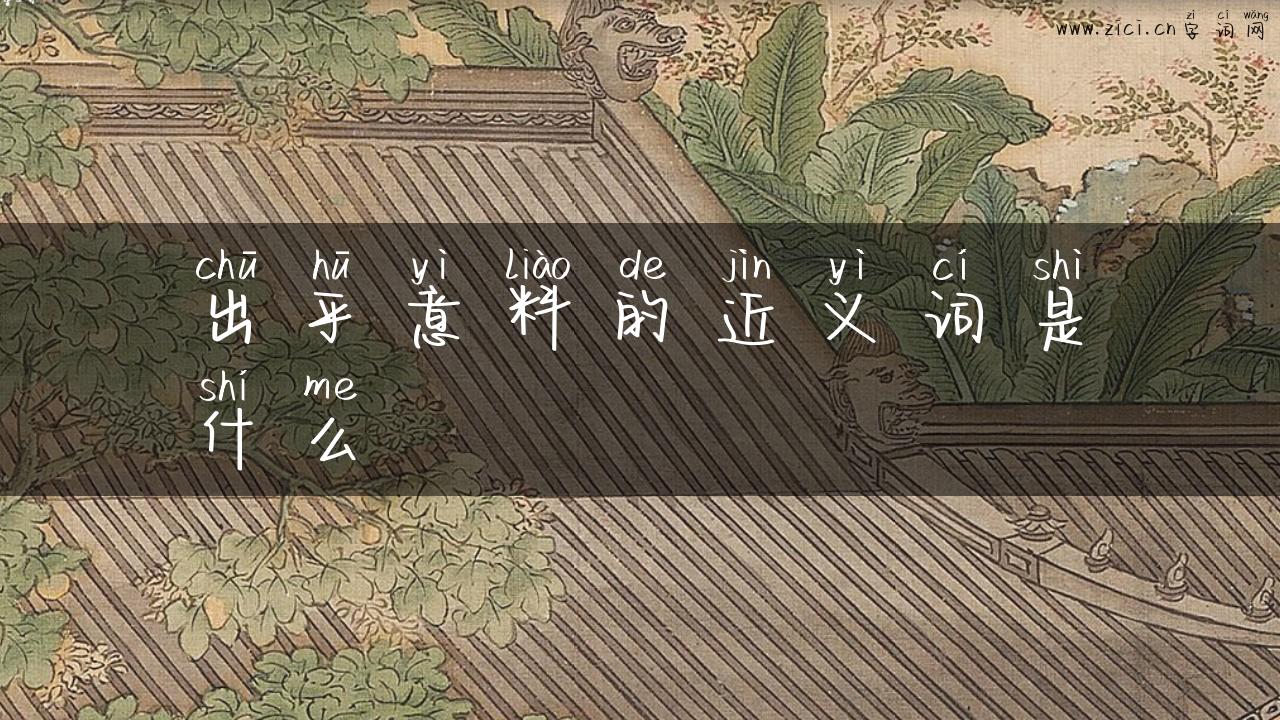 zì cí wǎng
www.zici.cn 字 词 网
chū hū yì liào de jìn yì cí shì
出 乎 意 料 的 近 义 词 是
shí me
什 么